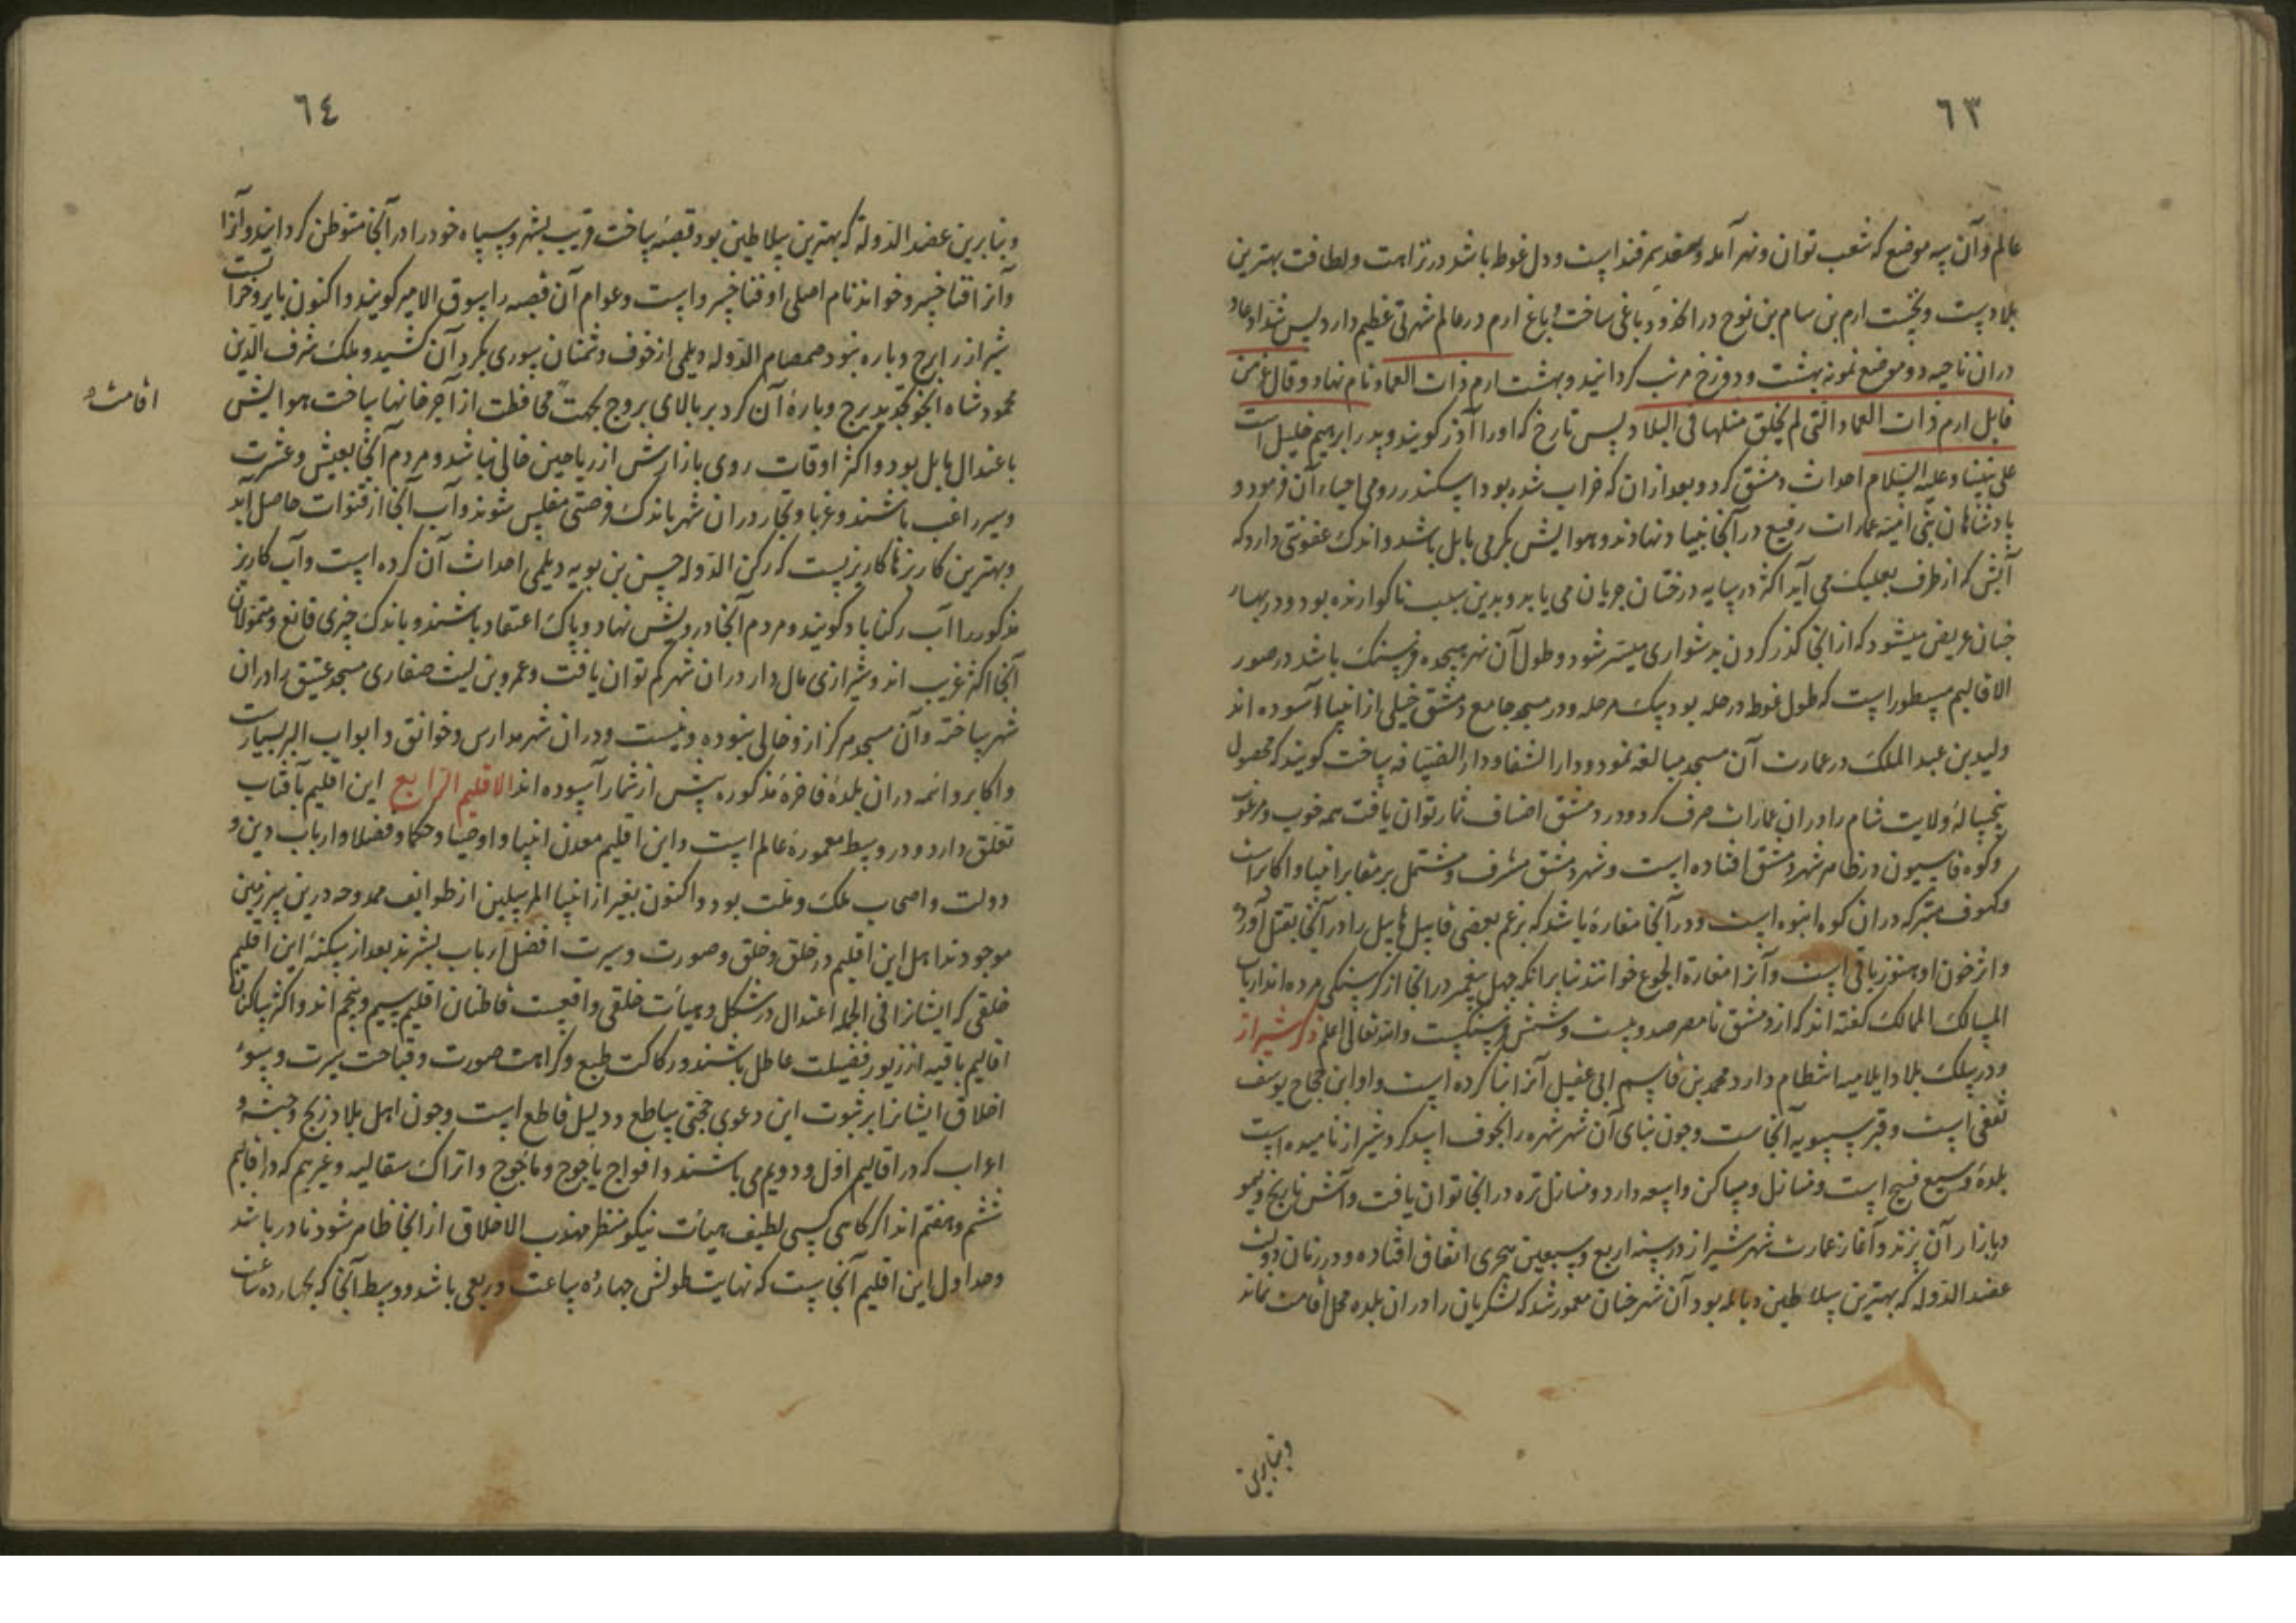 ٦٣
عالم وآن سه موضع که شعب توان ونهر آمله وسغد سمرقند است ودل غوط باشد در نزاهت ولطافت بهترین
بلادست ونخست ارم بن سام بن نوح در انحدود باغی ساخت وباغ ارم در عالم شهرتی عظیم دارد پس شداد عاد
دران ناحیه دو موضع نمونه بهشت ودوزخ مرتب کردانید وبهشت ارم ذات العماد نام نهاد وقال عز من
قایل ارم ذات العماد التی لم یخلق مثلها فی البلاد پس تارخ که اورا آذر کویند وپدر ابرهیم خلیل است
علی نبینا وعلیه السلام احداث دمشق کرد وبعد ازان که خراب شده بود اسکندر رومی احیاء آن فرمود و
پادشاهان بنی امیه عمارات رفیع در آنجا بنیاد نهادند وهوایش بکرمی مایل باشد واندک عفونتی دارد که
آبش که از طرف بعلبک می آید اکثر در سایه درختان جریان می یابد وبدین سبب ناکوارنده بود ودر بهار
چنان عریض میشود که از انجا کذر کردن بدشواری میسر شود وطول آن نهر هیجده فرسنک باشد در صور
الاقالیم مسطور است که طول غوط درحله بود یک مرحله ودر مسجد جامع دمشق خیلی از انبیا آسوده اند
ولید بن عبد الملک در عمارت آن مسجد مبالغه نمود ودار الشفا ودار الضیافه ساخت کویند که محصول
پنجساله ولایت شام را دران عمارات صرف کرد ودر دمشق اصناف ثمار توان یافت همه خوب ومرغوب
وکوه قاسیون در ظاهر شهر دمشق افتاده است وشهر دمشق مشرف ومشتمل بر مقابر انبیا واکابر است
وکهوف متبرکه دران کوه انبوه است ودر آنجا مغارهٔ باشد که بزعم بعضی قابیل هابیل را در آنجا بقتل آورد
واثر خون او هنوز باقی است وآنرا مغارة الجوع خوانند بنابر انکه چهل پیغمبر در انجا از کرسنکی مرده اند ارباب
المسالک الممالک کفته اند که از دمشق تا مصر صد وبیست وشش فرسنکست والله تعالی اعلم ذکر شیراز
ودر سلک بلاد اسلامیه انتظام دارد محمد بن قاسم ابی عقیل آنرا بنا کرده است واو ابن حجاج یوسف
ثقفی است وقبر سیبویه آنجاست وچون بنای آن شهر شهره را بجوف اسد کرد شیراز نامیده است
بلدهٔ وسیع فسیح است ومنازل ومساکن واسعه دارد ومنازل تره در انجا توان یافت وآتش نارنج ولیمو
دبازار آن پزند وآغاز عمارت شهر شیراز در سنه اربع وسبعین هجری اتفاق افتاده ودر زمان دولت
عضد الدوله که بهترین سلاطین دیالمه بود آن شهر چنان معمور شد که لشکریان را دران بلده محل اقامت نماند
وبنابرین
٦٤
وبنابرین عضد الدولة که بهترین سلاطین بود قصبه ساخت قریب بشهر وسپاه خود را در آنجا متوطن کردانید وآنرا
وآنرا فنا خسرو خواند نام اصلی او فنا خسرو است وعوام آن قصبه را سوق الامیر کویند واکنون بایر وخرابست
شیراز را برج وباره نبود صمصام الدوله دیلمی از خوف دشمنان سوری بکرد آن کشید وملک شرف الدین
محمود شاه اینجو تجدید برج وبارهٔ آن کرد بر بالای بروج بجهت محافظت از آجر خانها ساخت هوایش
اقامت
باعتدال مایل بود واکثر اوقات روی بازارش از ریاحین خالی نباشد ومردم آنجا بعیش وعشرت
وسیر راغب باشند وغربا وتجار دران شهر باندک فرصتی مفلس شوند وآب آنجا از قنوات حاصل آید
وبهترین کاریزها کاریزیست که رکن الدوله حسن بن بویه دیلمی احداث آن کرده است وآب کاریز
مذکور را آب رکناباد کویند ومردم آنجا درویش نهاد وپاک اعتقاد باشند وباندک چیزی قانع ومتمولان
آنجا اکثر غریب اند وشیرازی مال دار دران شهر کم توان یافت وعمرو بن لیث صفاری مسجد عتیق را دران
شهر ساخته وآن مسجد هرکز از وخالی نبوده ونیست ودران شهر مدارس وخوانق وابواب البر بسیارست
واکابر وائمه دران بلدهٔ فاخرهٔ مذکوره بیش از شمار آسوده اند الاقلیم الرابع این اقلیم بآفتاب
تعلق دارد ودر وسط معمورهٔ عالم است واین اقلیم معدن انبیا واوصیا وحکما وفضلا وارباب دین و
دولت واصحاب ملک وملت بود واکنون بغیر از انبیا المرسلین از طوایف ممدوحه درین سرزمین
موجودند اهل این اقلیم در خلق وخلق وصورت وسیرت افضل ارباب بشرند بعد از سکنه این اقلیم
خلقی که ایشانرا فی الجمله اعتدال در شکل وهیأت خلقی واقعست قاطنان اقلیم سیم وپنجم اند واکثر ساکنان
اقالیم باقیه از زیور فضیلت عاطل باشند ورکاکت طبع وکراهت صورت وقباحت سیرت وسوء
اخلاق ایشانرا بر ثبوت این دعوی حجتی ساطع ودلیل قاطع است وچون اهل بلاد زنج وحبشه و
اعراب که در اقالیم اول ودویم می باشند وافواج یأجوج ومأجوج واتراک سقالبه وغیرهم که در اقالیم
ششم وهفتم اند اکر کاهی کسی لطیف هیأت نیکو منظر مهذب الاخلاق از انجا ظاهر شود نادر باشد
وحد اول این اقلیم آنجاست که نهایت طولش چهارده ساعت وربعی باشد ووسط آنجا که چهارده ساعت